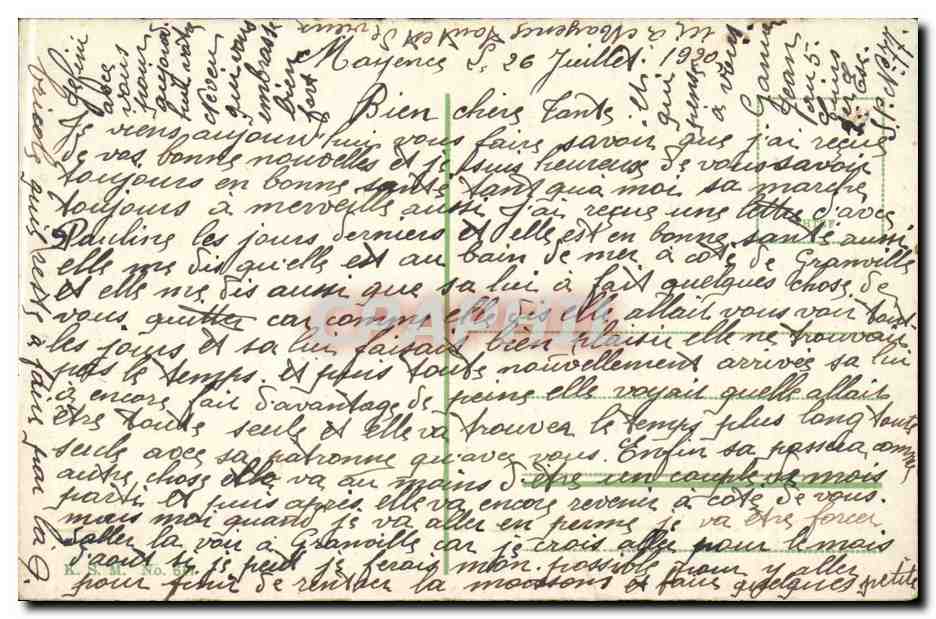 Mayence L, 26 Juillet 1920
Bien chère tante
Je viens aujourd'hui vous faire savoir que j'ai reçue
de vos bonne nouvelles et je suis heureux de vous savoir
toujours en bonne santé tant qua moi sa marche
toujours à merveille aussi j'ai reçue une lettre d'avec
Pauline les jours derniers et elle est en bonne santé aussi
elle me dis qu'elle est au bain de mer à côté de Granville
et elle me dis aussi que sa lui à fait quelques chose de
vous quitter car comme elle dis elle allait vous voir tout
les jours et sa lui faisait bien plaisir elle ne trouvais
pas le temps. et puis toute nouvellement arrivée sa lui
à encore fait d'avantage de peine elle voyais quelle allais
être toute seule et elle va trouver le temps plus long toute
seule avec sa patronne qu'avec vous. Enfin sa passera comme
autre chose elle va au moins d'être un couple de mois
parti et puis après elle va encore revenir à côté de vous.
mais moi quand je va aller en perme je va être forcer
d'aller la voir à Granville car je crois aller pour le mois
d'août si je peut je ferais mon possible pour y aller
pour finir de rentrer la moisson et faire quelques petite
bricole qui reste à faire par là.
Enfin
avec
vous
toujour
tout
neveu
qui vous
embrasse
bien
fort
qui
pense
à vous
Jean
S.P. No
tout est
Mayence
K. S. M. No. 
GRAPHIL